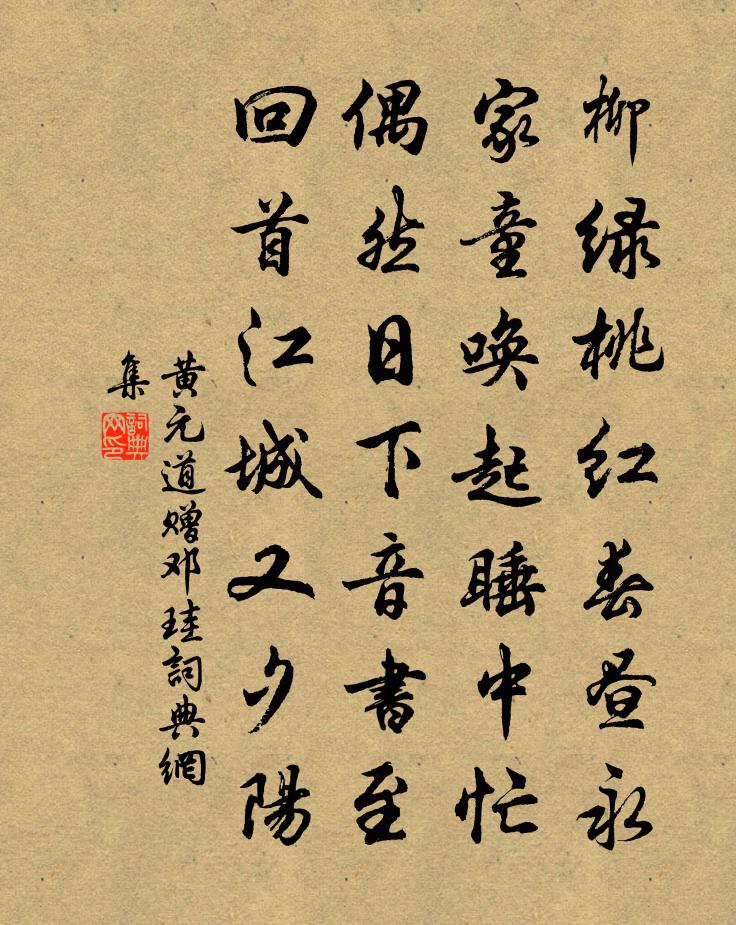 柳绿桃红春昼永
家童唤起睡中忙
偶然日下音書至
回首江城又夕陽
黄元道赠邓珪詞典網
集
詞典网印